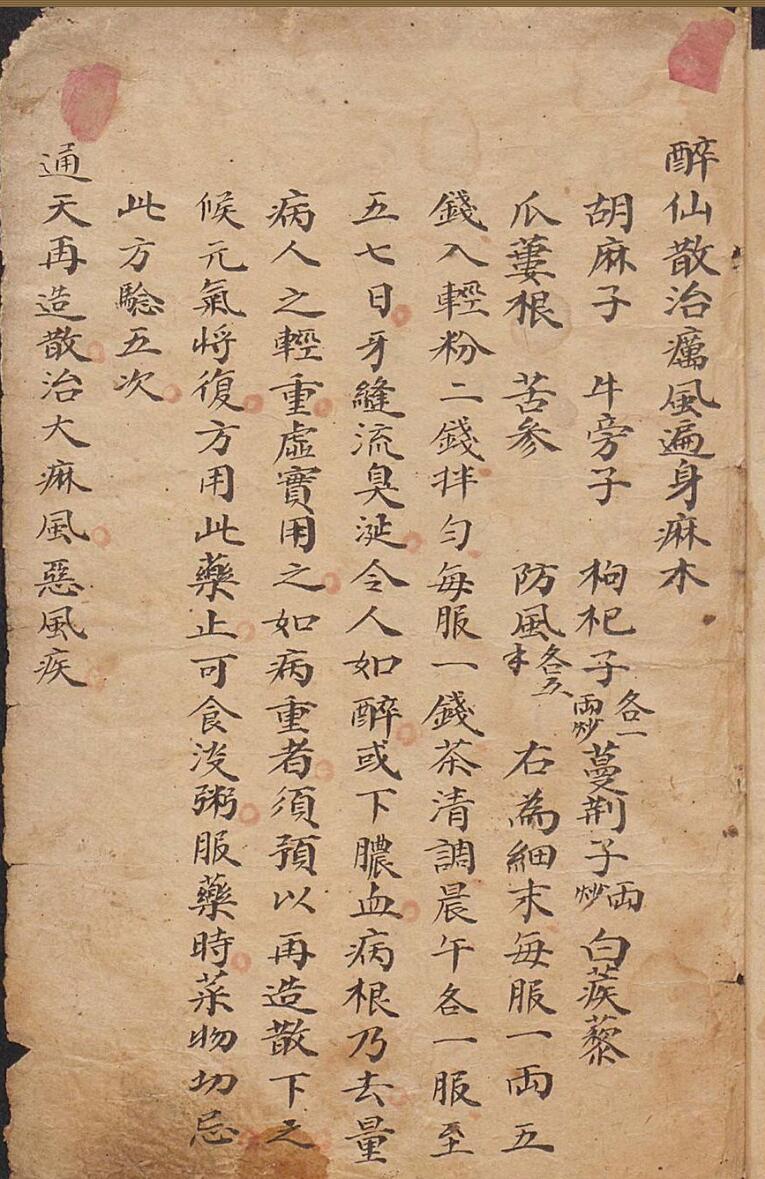 醉仙散治癘風遍身麻木
胡麻子 牛旁子 枸杞子各一兩炒 蔓荆子兩炒 白蒺藜
瓜蔞根 苦参 防風各五 右為細末每服一兩五
錢入輕粉二錢拌匀每服一錢茶清調晨午各一服至
五七日牙縫流臭涎令人如醉或下膿血病根乃去量
病人之輕重虛實用之如病重者須預以再造散下之
候元氣将復方用此藥止可食淡粥服藥時菜物切忌
此方騐五次
通天再造散治大痳風惡風疾